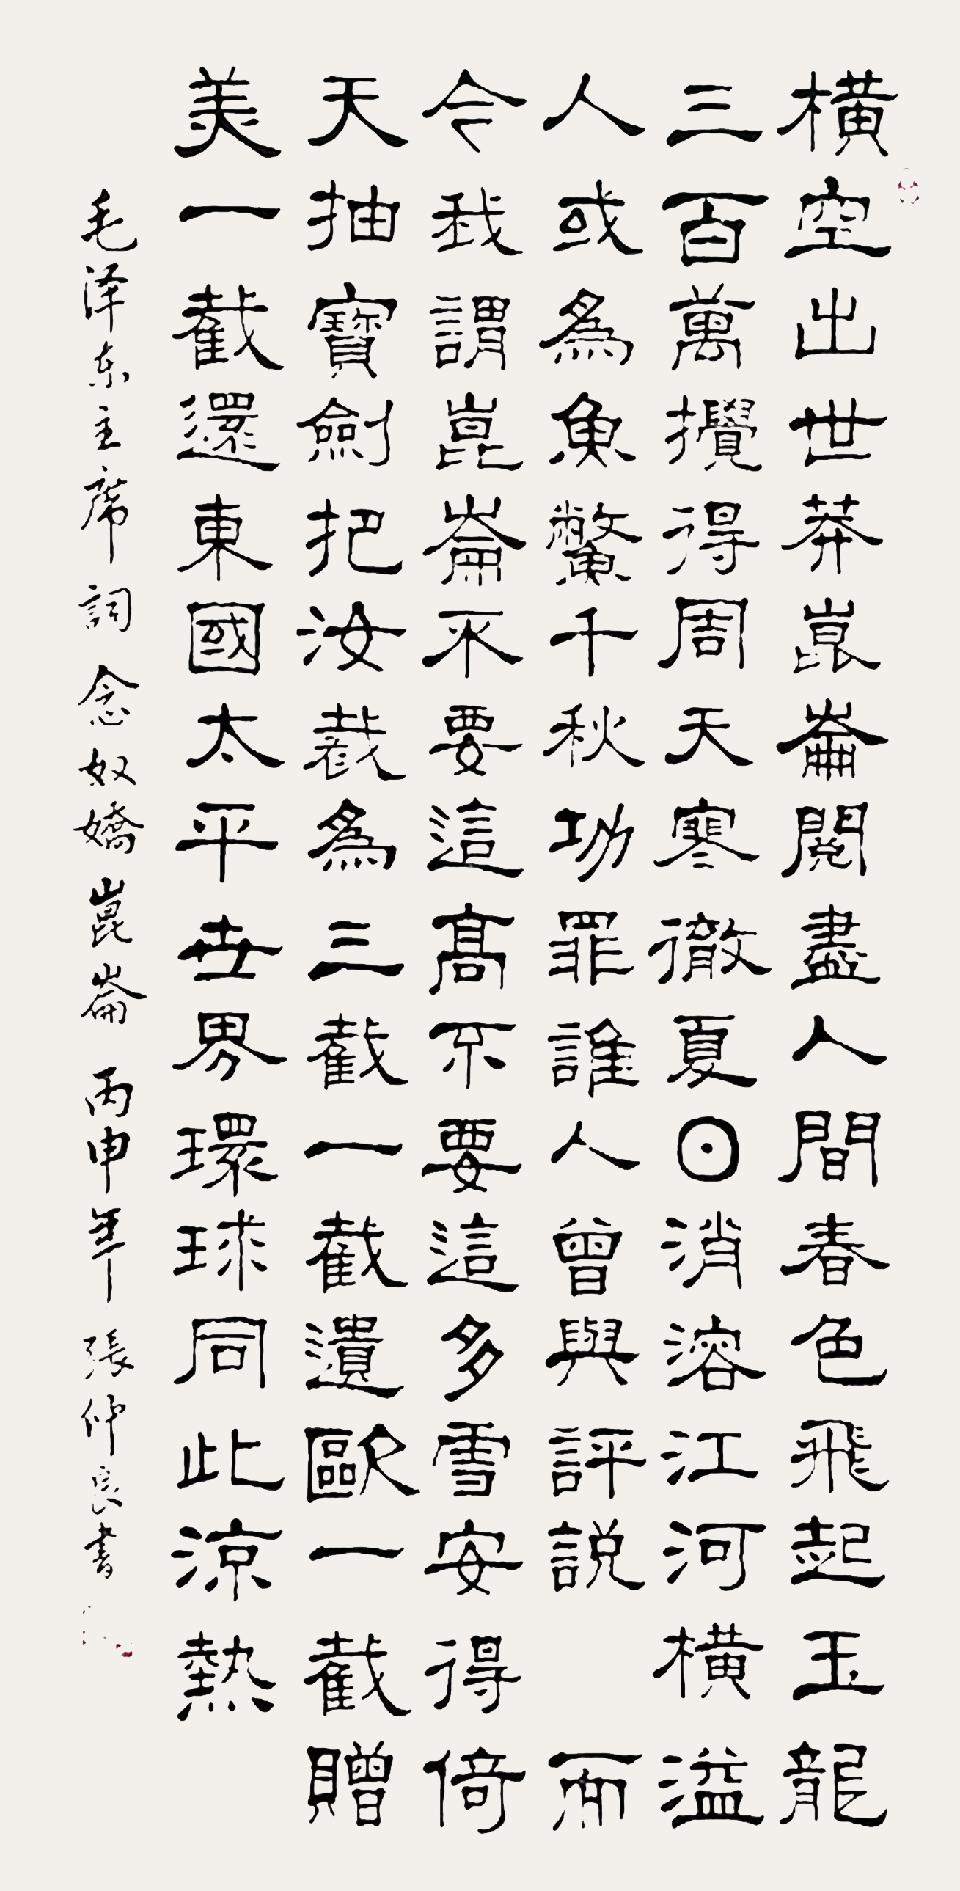 橫空出世莽崑崙閱盡人間春色飛起玉龍
三百萬攪得周天寒徹夏日消溶江河橫溢
人或為魚鱉千秋功罪誰人曾與評説 而
今我謂崑崙不要這高不要這多雪安得倚
天抽寶劍把汝截為三截一截遺歐一截贈
美一截還東國太平世界環球同此涼熱
毛泽东主席詞 念奴嬌 崑崙 丙申年 張仲良書